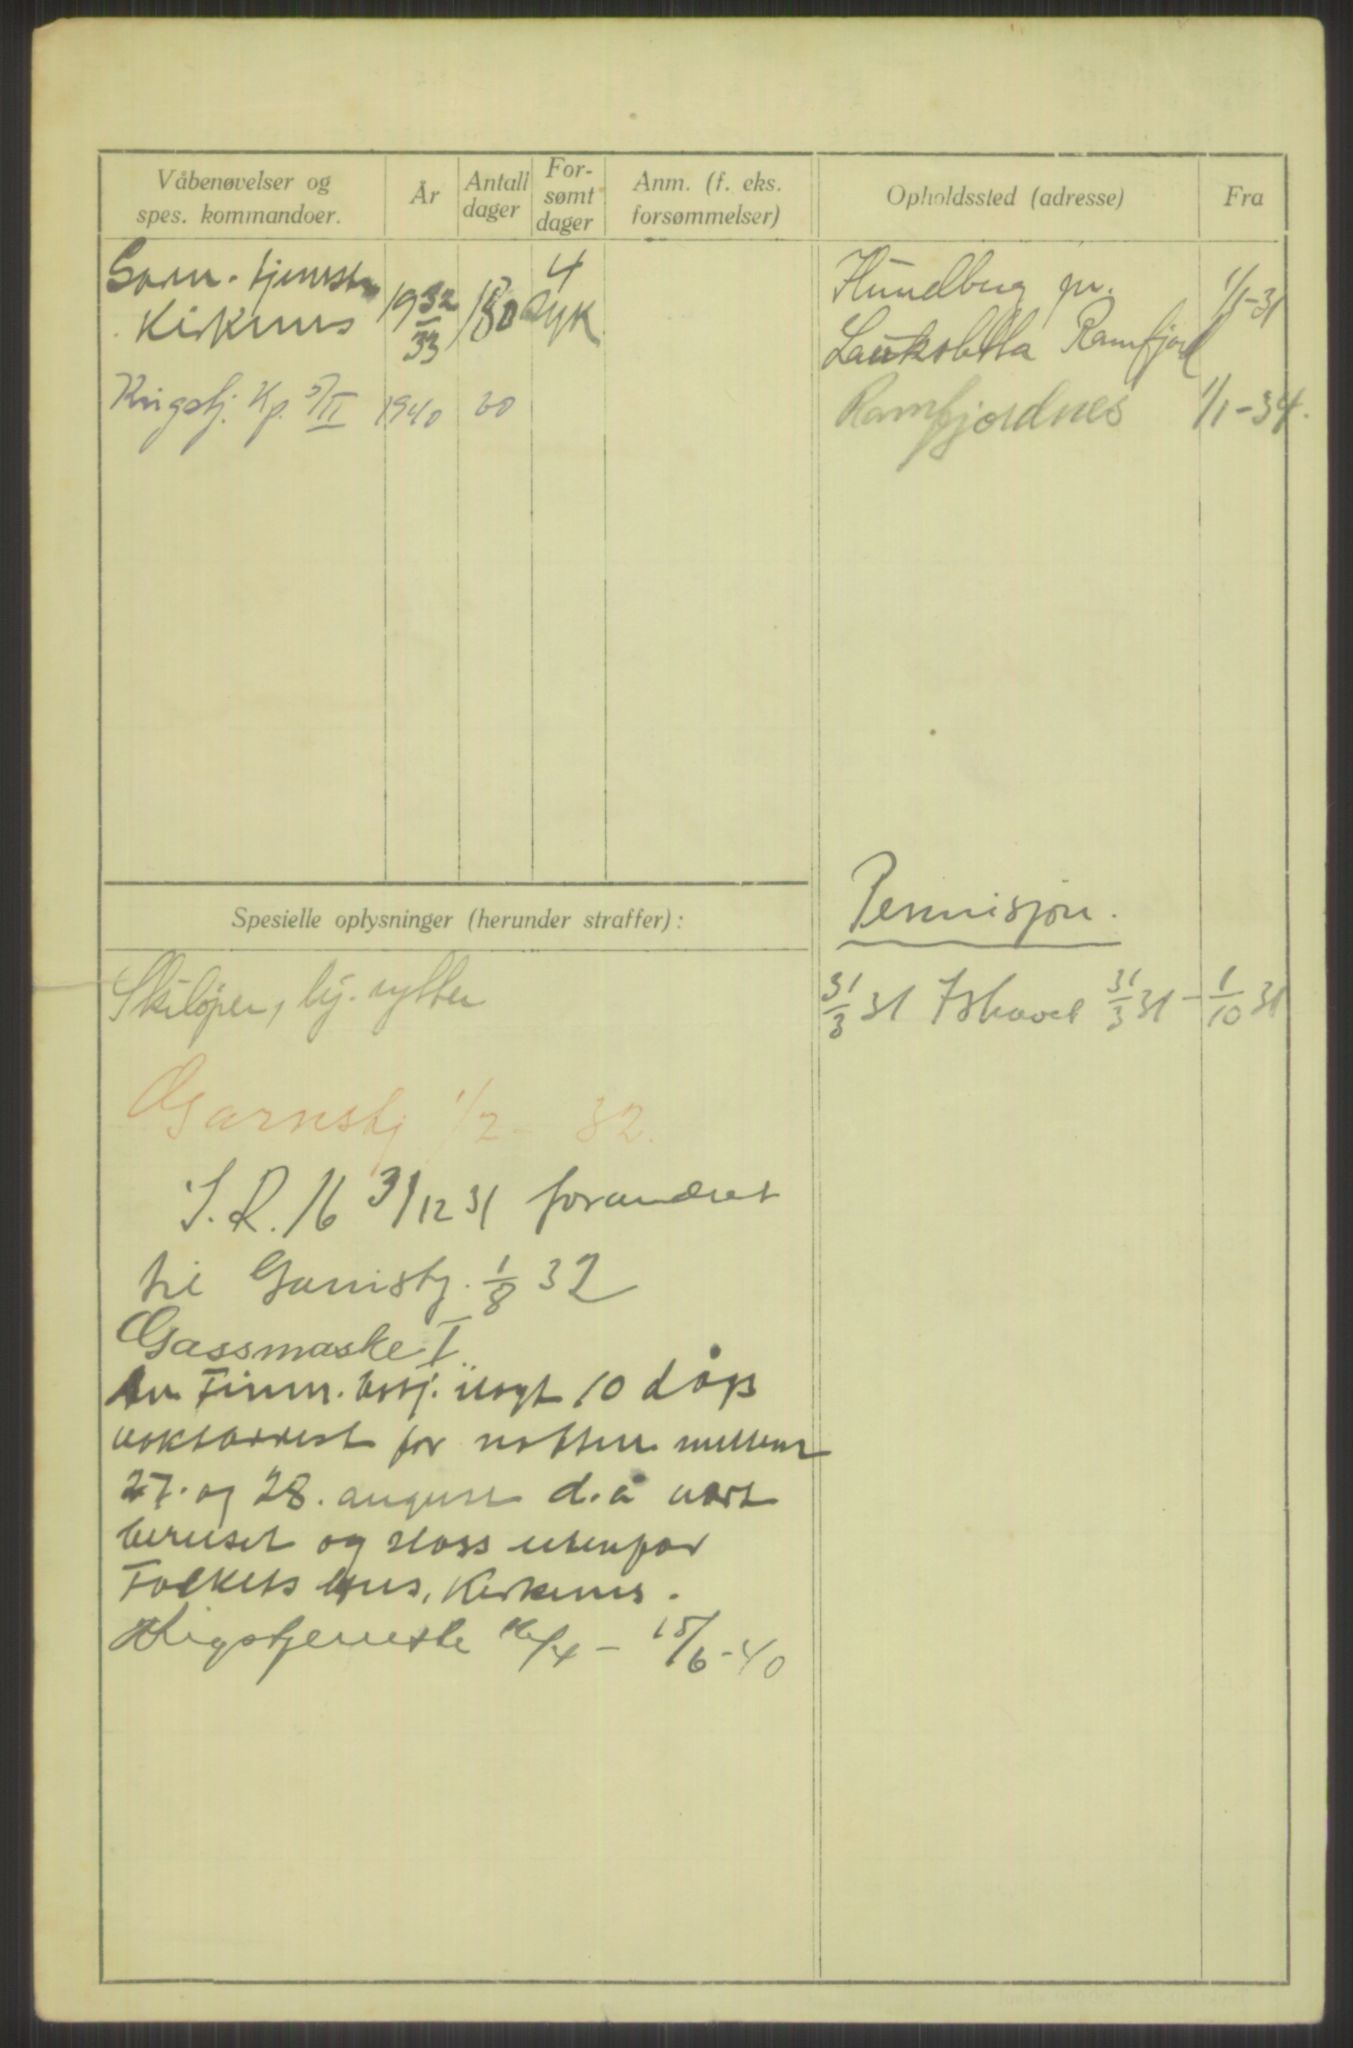 Våbenøvelser og
spes. kommandoer.
År
Antall
dager
For-
sømt
dager
Anm. (f. eks.
forsømmelser)
Opholdssted (adresse)
Fra
Garn. tjeneste
Kirkenes
19 32/33
180
4
syk
Hundberg pr.
Lauksletta Ramfjord
1/1-31
Krigstj. Kp. 5/II
1940
Ramfjordnes
1/1-34.
Spesielle oplysninger (herunder straffer):
Permisjon.
31/3 31 Ishavet 31/3 31 - 1/10 31
Skiløper, rytter
Garnstj 1/2 - 32.
I.R. 16 31/12 31 forandret
til Garnistj. 1/8 32
Gassmaske I.
Av Finm. ilagt 10 dags
vaktarrest for natten mellem
27. og 28. august d.å vært
beruset og sloss utenfor
Folkets hus, Kirkenes.
Krigstjeneste - 15/6-40